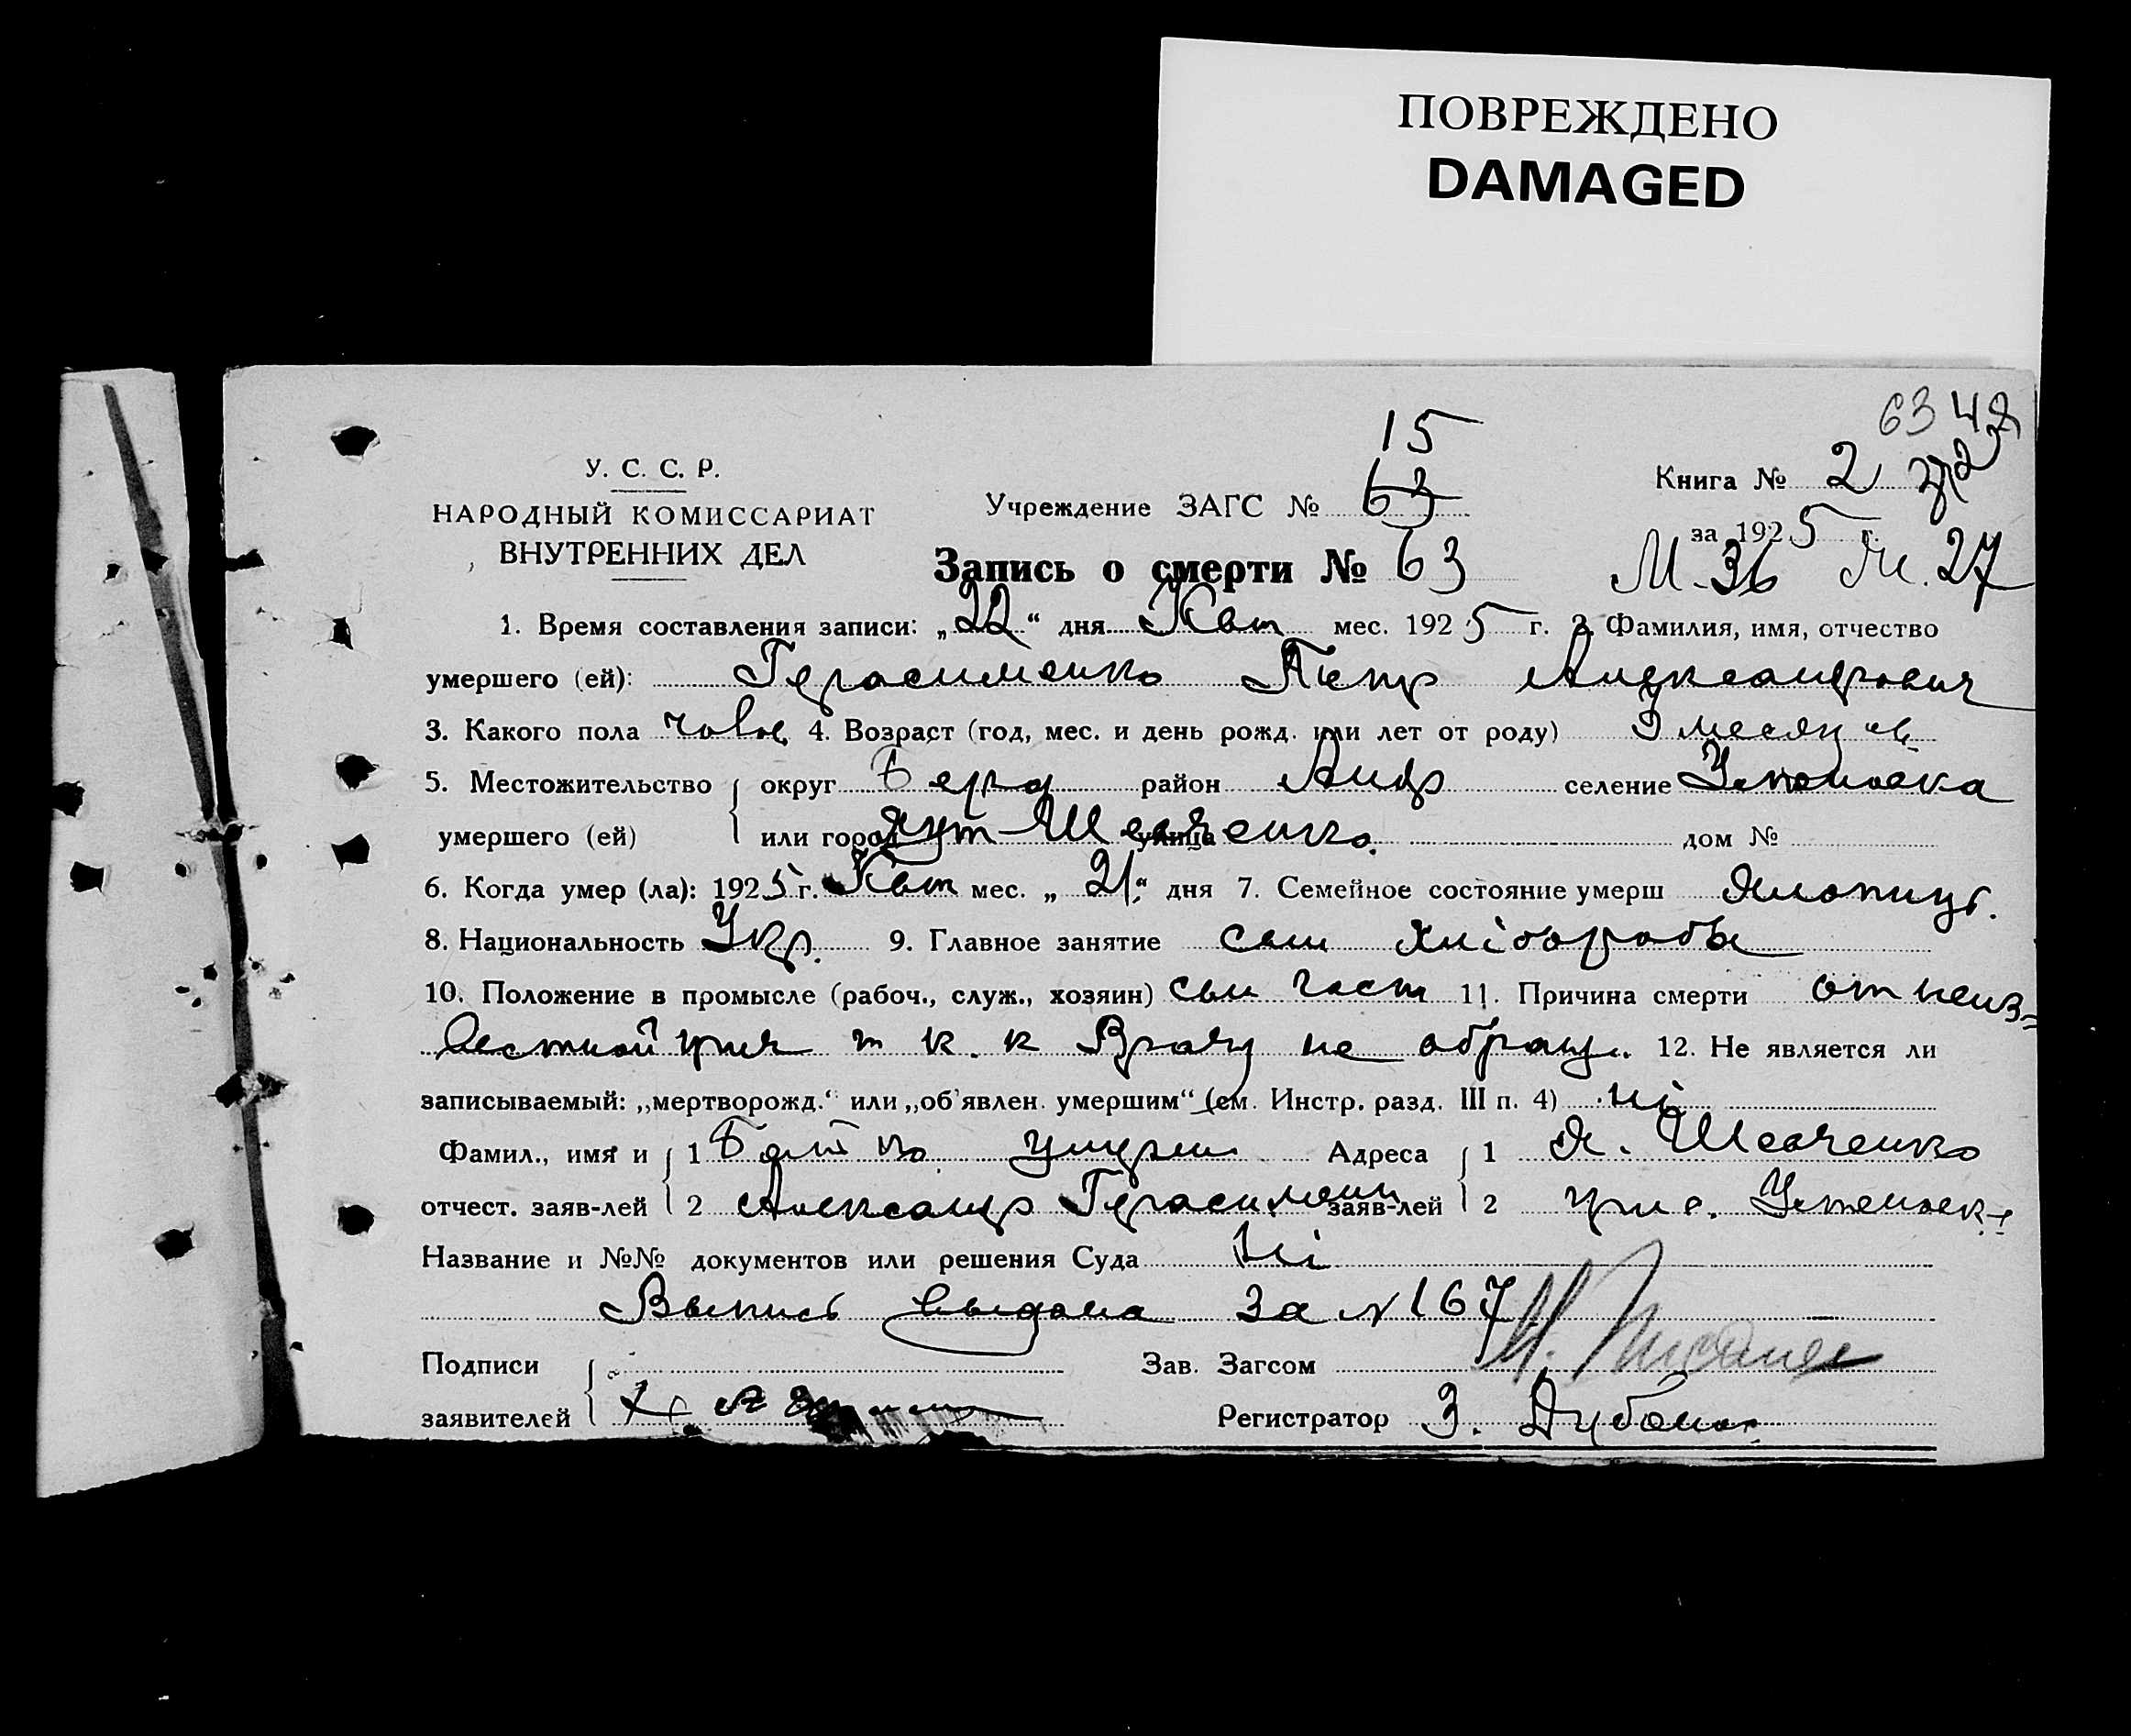 ПОВРЕЖДЕНО
DAMAGED
63 42
15
У. С. С. Р.
НАРОДНЫЙ КОМИССАРИАТ
ВНУТРЕННИХ ДЕЛ
Учреждение ЗАГС № 63
Книга № 2
за 1925 г.
Запись о смерти № 63
М. 36 М. 27
1. Время составления записи: „22“ дня Квт мес. 1925 г. 2. Фамилия, имя, отчество
умершего (ей): Герасименко Петр Александрович
3. Какого пола чолов 4. Возраст (год, мес. и день рожд. или лет от роду) 9 месяцев
5. Местожительство округ Берд район Андр селение
умершего (ей) или город Хут Шевченко улица дом №
6. Когда умер (ла): 1925 г. Квт мес. „21“ дня 7. Семейное состояние умерш Хлопчик.
8. Национальность Укр. 9. Главное занятие син хлібороба
10. Положение в промысле (рабоч., служ., хозяин) сын 11. Причина смерти от неиз=
вестной прич т к. к Врачу не обращ. 12. Не является ли
записываемый: „мертворожд.“ или „об'явлен. умершим“ (см. Инстр. разд. III п. 4) ні
Фамил., имя и 1 Батько умерш Адреса 1 Х. Шевченко
отчест. заяв-лей 2 Александр Герасименко заяв-лей 2
Название и №№ документов или решения Суда Ні
Выпись выдана за № 167
Подписи Зав. Загсом
заявителей Регистратор З.